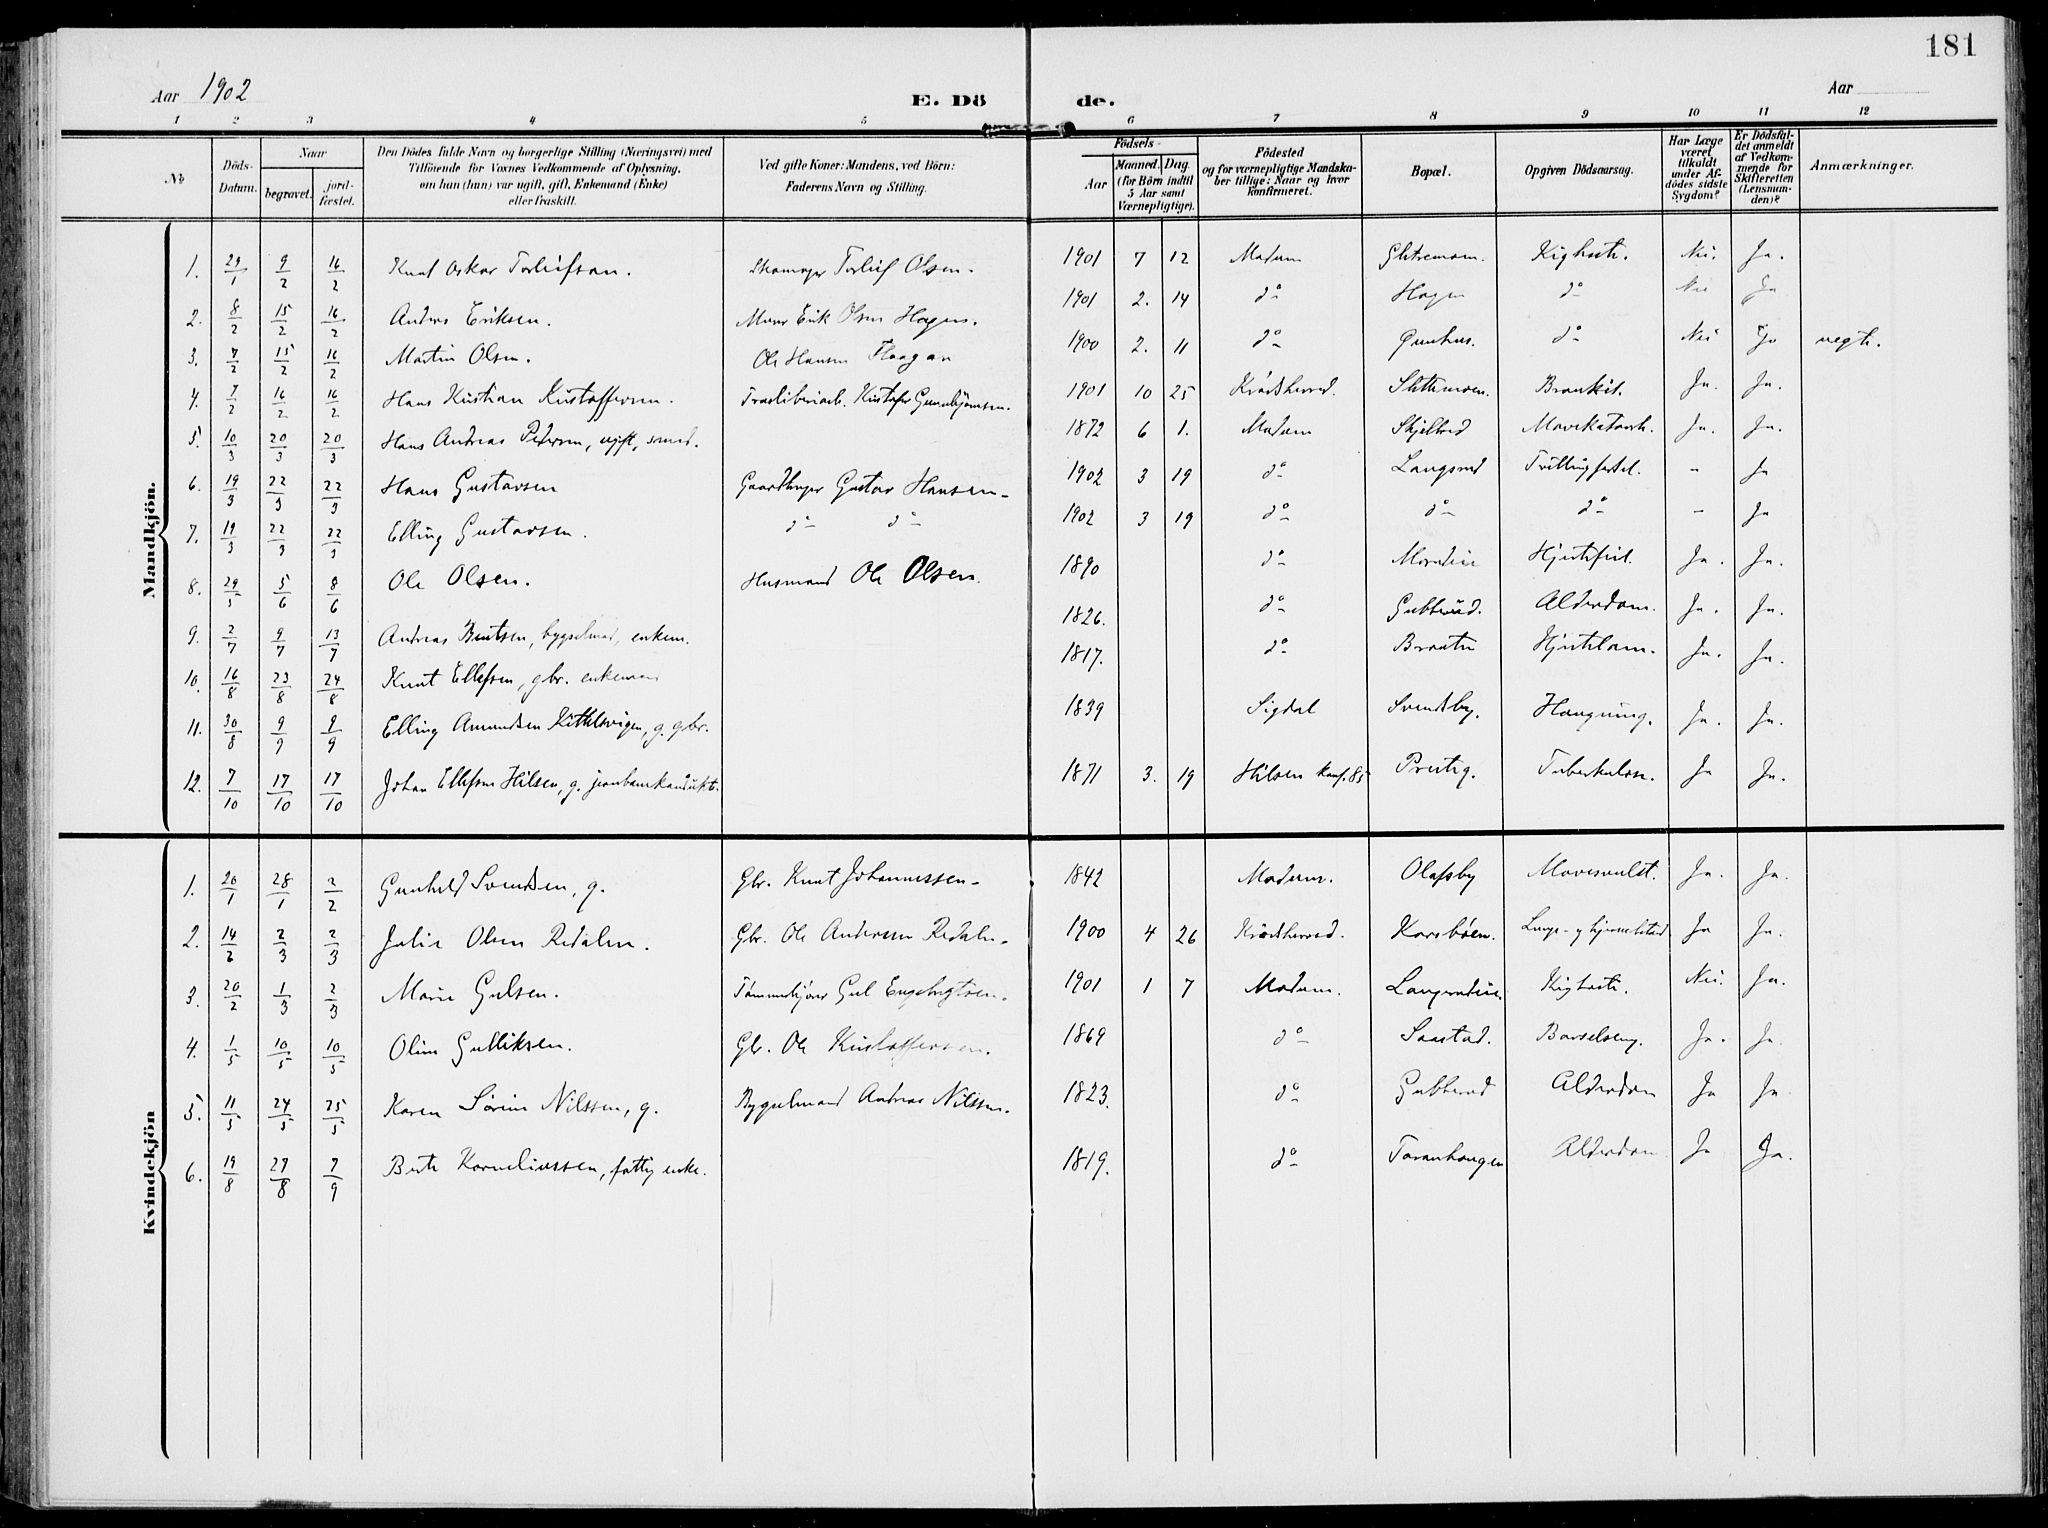 181
Aar 1902 E. Dö de. Aar
1 2 3 4 5 6 7 8 9 10 11 12
No
Döds-Datum.
Naar begravet. jord-fæstet.
Den Dödes fulde Navn og borgerlige Stilling (Næringsvei) med
Tilföiende for Voxnes Vedkommende af Oplysning,
om han (hun) var ugift, gift, Enkemand (Enke)
eller fraskilt.
Ved gifte Koner: Mandens, ved Börn:
Faderens Navn og Stilling.
Födsels-
Aar Maaned. Dag.
(for Börn indtil
5 Aar samt
Værnepligtige).
Födested
og for værnepligtige Mandska-
ber tillige: Naar og hvor
konfirmeret.
Bopæl.
Opgiven Dödsaarsag.
Har Læge
været
tilkaldt
under Af-
dödes sidste
Sygdom?
Er Dödsfal-
det anmeldt
af Vedkom-
mende for
Skifteretten
(Lensman-
den)?
Anmærkninger.
Mandkjön.
1. 29/1 9/2 16/2 Knut Oskar Torleifsen. Skomager Torleif Olsen. 1901 7 12 Modum Kighoste. Nei. Ja.
2. 8/2 15/2 16/2 Anders Eriksen. Murer Erik Olsen Hagen. 1901 2. 14 do Hagen do Nei Ja
3. 7/2 15/2 16/2 Martin Olsen. Ole Hansen 1900 2. 11 do do Nei Ja
4. 7/2 16/2 16/2 Hans Kristian Kristoffersen. Kristofer Gunbjørnsen. 1901 10 25 Krødsherred. Bronkit. Ja. Ja.
5. 10/3 20/3 20/3 Hans Andreas Pedersen, ugift, smed. 1872 6 1. Modum Skjelbred Mavekatarrh. Ja. Ja.
6. 19/3 22/3 22/3 Hans Gustavsen Gaardbruger Gustav Hansen. 1902 3 19 do Langerud Tvillingfødsel. - Ja
7. 19/3 22/3 22/3 Elling Gustavsen. do do 1902 3 19 do do do - Ja
8. 29/5 5/6 8/6 Ole Olsen. Husmand Ole Olsen. 1890 do Hjertefeil. Ja. Ja.
9. 2/7 9/7 13/7 Andreas bygselmd, enkem. 1826. do Gubberud. Alderdom. Ja. Ja.
10. 16/8 23/8 24/8 Knut Ellefsen, gbr. enkemand 1817. do Braaten Hjertelam. Ja. Ja.
11. 30/8 9/9 9/9 Elling Amundsen Kittelsvigen, g. gbr. 1839 Sigdal Svendsby. Hængning. Ja. Ja.
12. 7/10 17/10 17/10 Johan Ellefsen Hilsen, g. jernbanekondukt. 1871 3. 19 Hilsen konf. 85 Prestg. Tuberkulose. Ja Ja.
Kvindekjön
1. 20/1 28/1 2/2 Gunhild Svendsen, g. Gbr. Knut Johannessen. 1842 Modum. Olafsby Mavesvulst. Ja. Ja.
2. 14/2 2/3 2/3 Julie Olsen Redalen. Gbr. Ole Andersen Redalen. 1900 4 26 Krødsherred. Korsbøen. Ja Ja.
3. 20/2 1/3 2/3 Marie Gulsen. Tømmerkjører Gul Engebrigtsen. 1901 1 7 Modum. Kighoste. Nei. Ja.
4. 1/5 10/5 10/5 Oline Gulliksen. Gbr. Ole Kristoffersen. 1869 do Saastad. Barselseng. Ja. Ja.
5. 11/5 24/5 25/5 Karen Sørine Nilssen, g. Bygselmand Andreas Nilssen. 1823. do Gubberud Alderdom Ja Ja
6. 19/8 27/8 7/9 Berte Korneliussen, fattig enke. 1819. do Taranhaugen Alderdom Ja Ja.